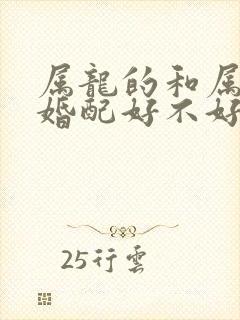 属龍的和属
婚配好不好
25行雲